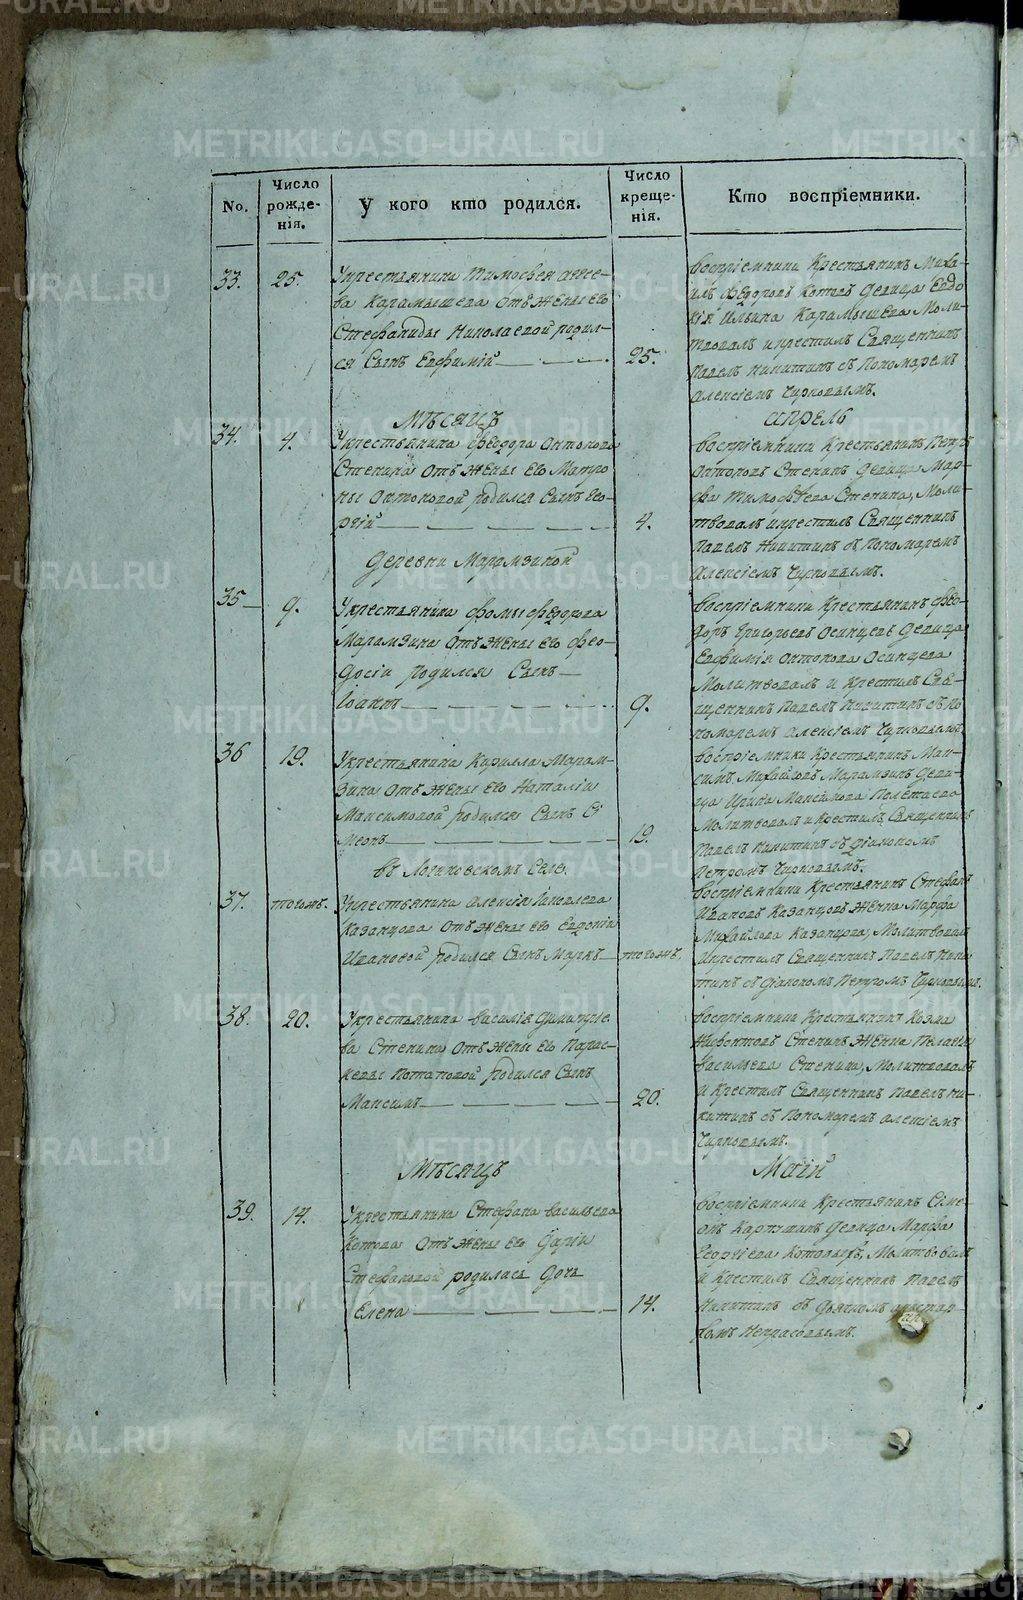 No.
Число рожде-нія.
У кого кто родился.
Число креще-нія.
Кто воспріемники.
33.
25.
У крестьянина Тимофея
ва Карамышева отъ жены его
Стефаниды Николаевой родил-
ся сынъ Евфимій
25.
воспріемники крестьянинъ Миха-
илъ Федоровъ Котовъ девица Евдо
кія Ильина Карамышева Моли-
твовалъ и крестилъ Священникъ
Павелъ Никитинъ съ Пономаремъ
Алексіемъ Чирковымъ.
Мѣсяцъ
Апрель
34.
4.
У крестьянина Феодора Антонова
Стенина отъ жены его Матро
ны Антоновой родился сынъ Гео-
ргій
4.
воспріемники крестьянинъ Петръ
Антоновъ Стенинъ девица Мар-
фа Тимофѣева Стенина, Моли-
твовалъ и крестилъ Священникъ
Павелъ Никитинъ съ Пономаремъ
Алексіемъ Чирковымъ.
Деревни Марамзиной
35
9.
У крестьянина Фомы Федорова
Марамзина отъ жены его Фео-
досіи родился сынъ
Іоаннъ
9.
воспріемники крестьянинъ Фео-
доръ Григорьевъ Осинцевъ девица
Евфимія Антонова Осинцева
Молитвовалъ и крестилъ Свя-
щенникъ Павелъ Никитинъ съ по
номаремъ Алексіемъ Чирковымъ
36
19.
У крестьянина Кирилла Марам-
зина отъ жены его Наталіи
Максимовой родился сынъ Сі
меонъ
19.
воспріемники крестьянинъ Мак-
симъ Михайловъ Марамзинъ деви-
ца Ирина Максимова
Молитвовалъ и крестилъ Священникъ
Павелъ Никитинъ съ діакономъ
Петромъ Чирковымъ.
въ Логиновскомъ Селе.
37.
тогожъ.
У крестьянина Алексія
Казанцова отъ жены его Евдокіи
Ивановой родился сынъ Маркъ
тогожъ.
воспріемники крестьянинъ Стефанъ
Ивановъ Казанцовъ женка Марфа
Михайлова Казанцова, Молитвовалъ
и крестилъ Священникъ Павелъ Ники
тинъ съ діакономъ Петромъ Чирковымъ.
38.
20.
У крестьянина Василія Димитріе
ва Стенина отъ жены его Парас-
кевы Потаповой родился сынъ
Максимъ
20.
воспріемники крестьянинъ Козма
Стенинъ женка Пелагіи
Васильева Стенина, Молитвовалъ
и крестилъ Священникъ Павелъ Ни-
китинъ съ Пономаремъ Алексіемъ
Чирковымъ.
Мѣсяцъ
Маій
39.
14.
У крестьянина Стефана Васильева
Котова отъ жены его Даріи
Стефановой родилась дочь
Елена
14.
воспріемники крестьянинъ Симе-
онъ Карпушинъ девица Марфа
Георгіева Котовыхъ, Молитвовалъ
и крестилъ Священникъ Павелъ
Никитинъ съ дьячкомъ Аристар-
хомъ Некрасовымъ.
METRIKI.GASO-URAL.RU